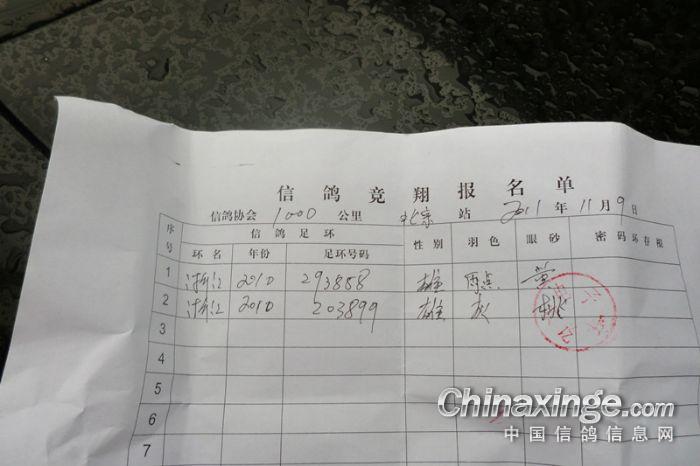 信鸽竞翔报名单
信鸽协会 1000 公里 北京 站 2011 年 11 月 9 日
序号 信鸽足环 性别 羽色 眼砂 密码环存根
环名 年份 足环号码
1 浙江 2010 293858 雄 雨点 黄
2 浙江 2010 203899 雄 灰 桃
3
4
5
6
7
Chinaxinge.com
中国信鸽信息网